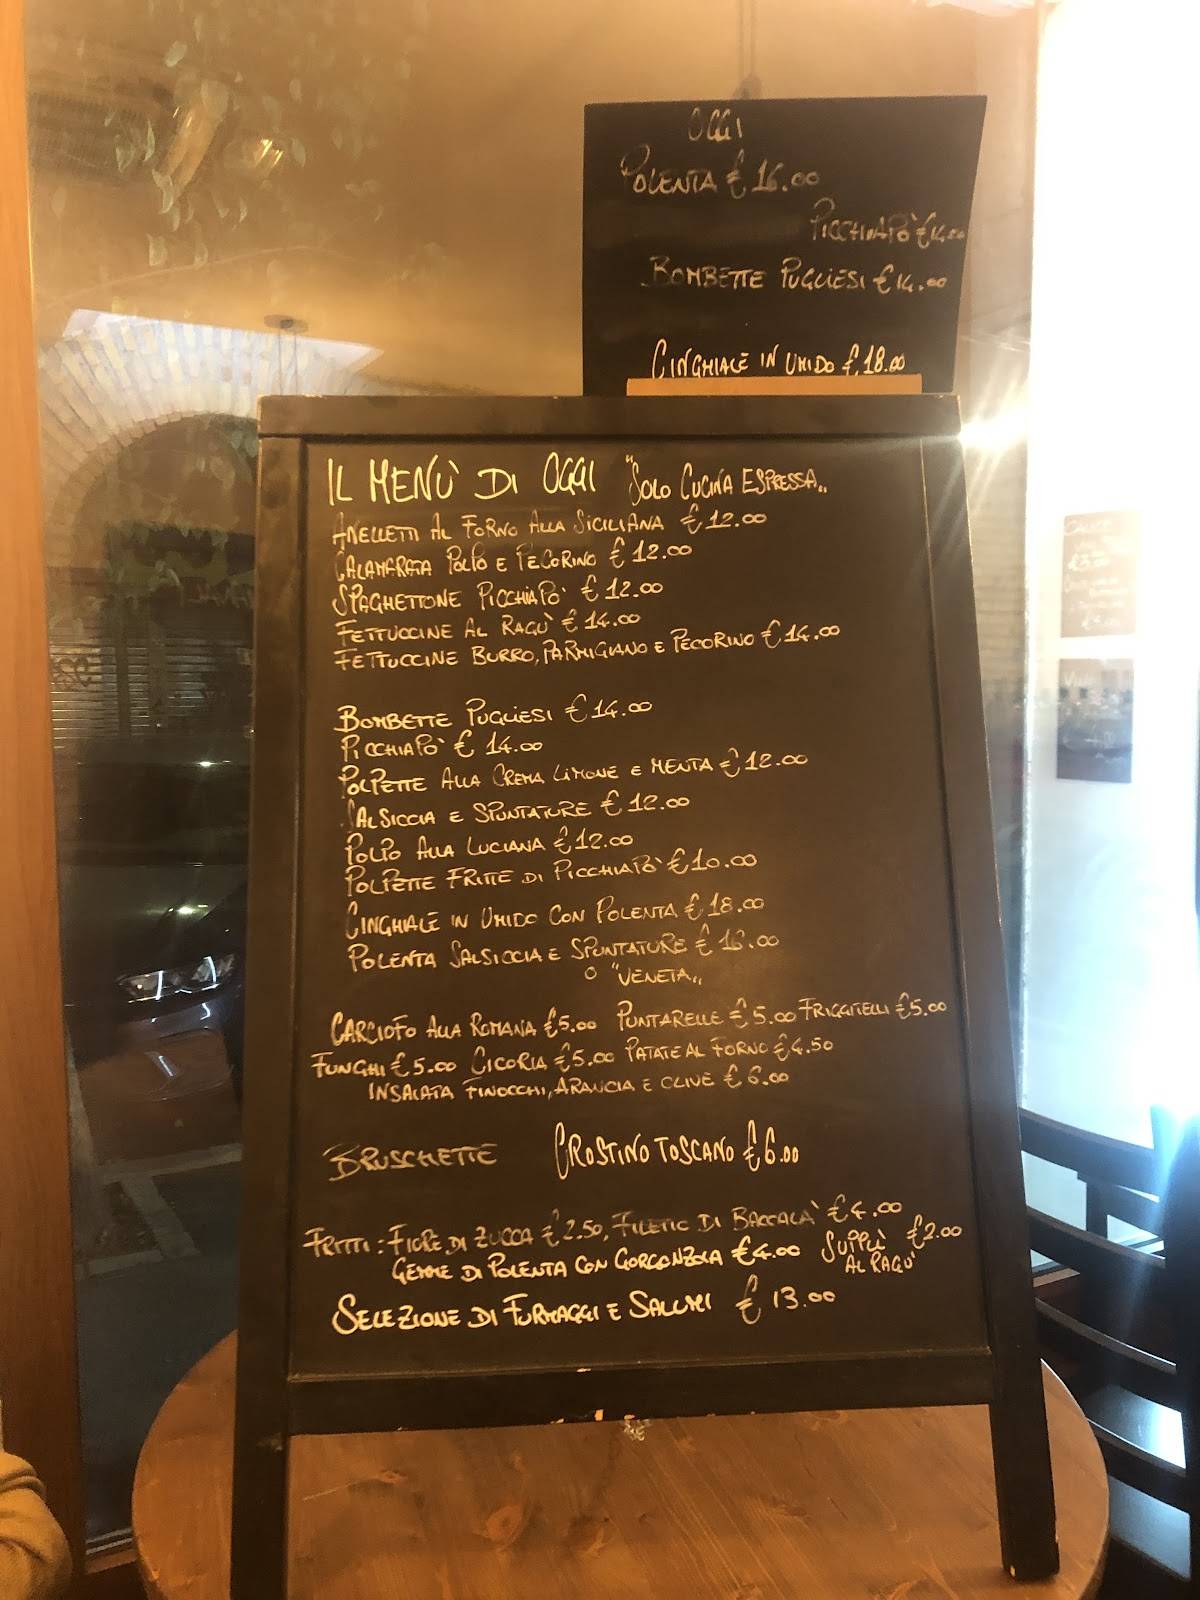 OGGI
POLENTA € 16.00
PICCHIAPÒ € 14.00
BOMBETTE PUGLIESI € 14.00
CINGHIALE IN UMIDO € 18.00
IL MENÙ DI OGGI "SOLO CUCINA ESPRESSA"
ANELLETTI AL FORNO ALLA SICILIANA € 12.00
CALAMARATA POLPO E PECORINO € 12.00
SPAGHETTONE PICCHIAPÒ € 12.00
FETTUCCINE AL RAGÙ € 14.00
FETTUCCINE BURRO, PARMIGIANO E PECORINO € 14.00
BOMBETTE PUGLIESI € 14.00
PICCHIAPÒ € 14.00
POLPETTE ALLA CREMA LIMONE E MENTA € 12.00
SALSICCIA E SPUNTATURE € 12.00
POLPO ALLA LUCIANA € 12.00
POLPETTE FRITTE DI PICCHIAPÒ € 10.00
CINGHIALE IN UMIDO CON POLENTA € 18.00
POLENTA SALSICCIA E SPUNTATURE € 16.00
O "VENETA"
CARCIOFO ALLA ROMANA € 5.00 PUNTARELLE € 5.00 FRIGGITELLI € 5.00
FUNGHI € 5.00 CICORIA € 5.00 PATATE AL FORNO € 4.50
INSALATA FINOCCHI, ARANCIA E OLIVE € 6.00
BRUSCHETTE CROSTINO TOSCANO € 6.00
FRITTI: FIORE DI ZUCCA € 2.50, FILETTO DI BACCALÀ € 4.00
GEMME DI POLENTA CON GORGONZOLA € 4.00 SUPPLÌ AL RAGÙ € 2.00
SELEZIONE DI FORMAGGI E SALUMI € 13.00